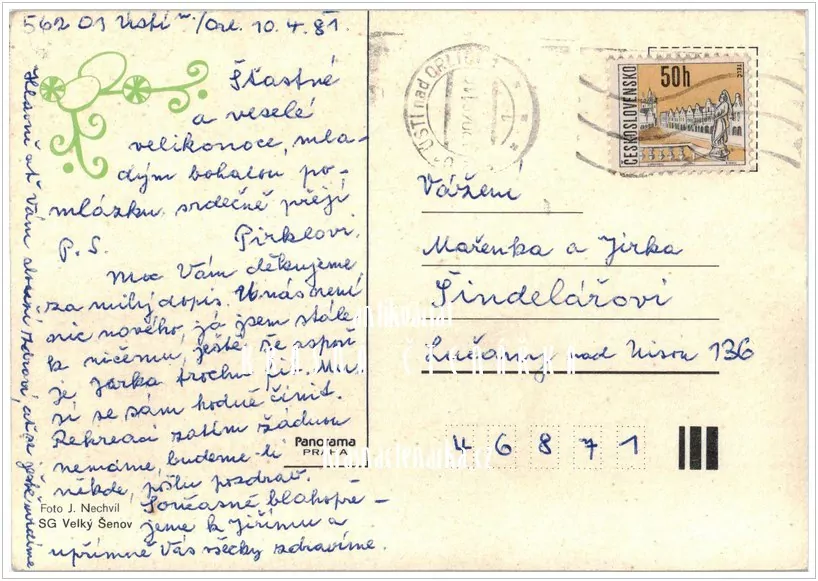 562 01 Ústí n./Orl. 10.4.81.
Šťastné
a veselé
velikonoce, mla-
dým bohatou po-
mlázku srdečně přejí
Pirklovi.
P.S.
Moc Vám děkujeme
za milý dopis. U nás není
nic nového, já jsem stále
k ničemu, ještě že aspoň
je Jarka trochu
sí se sám hodně činit.
Rekreaci zatím žádnou
nemáme, budeme-li
někde, pošlu pozdrav.
Současně blahopře-
jeme k Jiřímu a
upřímně Vás všecky zdravíme.
Hlavně ať Vám slouží zdraví, ať se ještě uvidíme
Foto J. Nechvíl
SG Velký Šenov
Panorama
PRAHA
ÚSTÍ nad ORLICÍ 1
ČESKOSLOVENSKO
50h
TELČ
Vážení
Mařenka a Jirka
Šindelářovi
Lučany nad Nisou 136
46871
antikvariát
KRÁSNÁ ČTENÁŘKA
krasnactenarka.cz